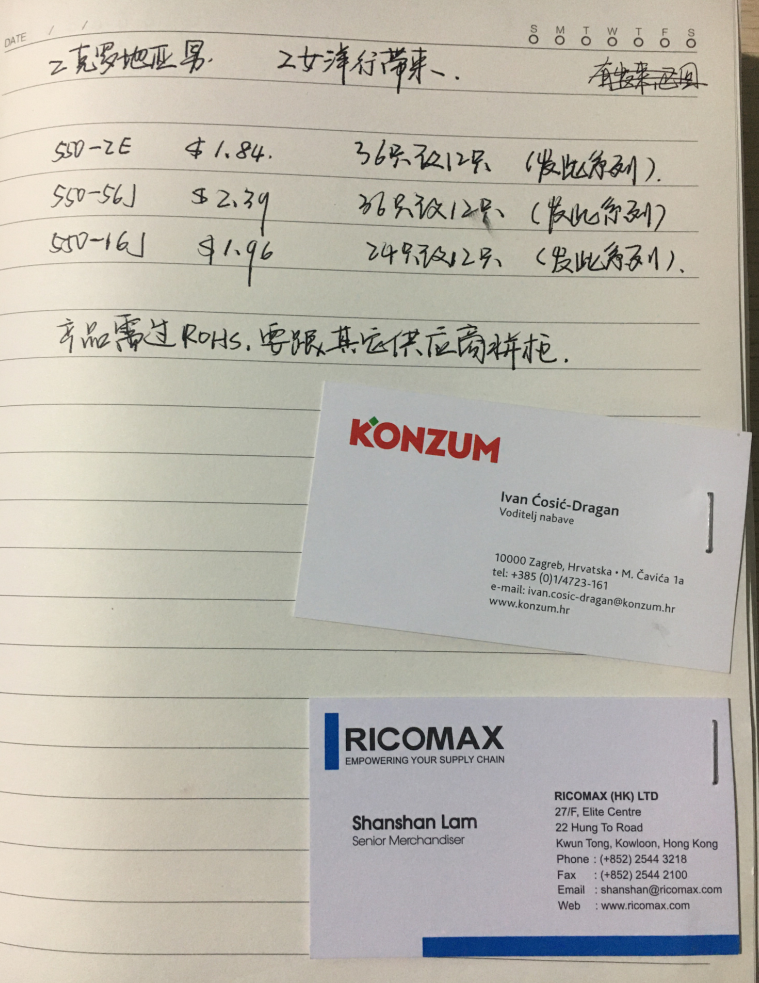 DATE / /
S M T W T F S
2克罗地亚男. 2女洋行带来.
550-2E $1.84. 36只改12只 (发此系列).
550-56J $2.39 36只改12只 (发此系列)
550-16J $1.96 24只改12只 (发此系列).
产品需过ROHS. 要跟其它供应商拼柜.
KONZUM
Ivan Ćosić-Dragan
Voditelj nabave
10000 Zagreb, Hrvatska • M. Čavića 1a
tel: +385 (0)1/4723-161
e-mail: ivan.cosic-dragan@konzum.hr
www.konzum.hr
RICOMAX
EMPOWERING YOUR SUPPLY CHAIN
Shanshan Lam
Senior Merchandiser
RICOMAX (HK) LTD
27/F, Elite Centre
22 Hung To Road
Kwun Tong, Kowloon, Hong Kong
Phone : (+852) 2544 3218
Fax : (+852) 2544 2100
Email : shanshan@ricomax.com
Web : www.ricomax.com